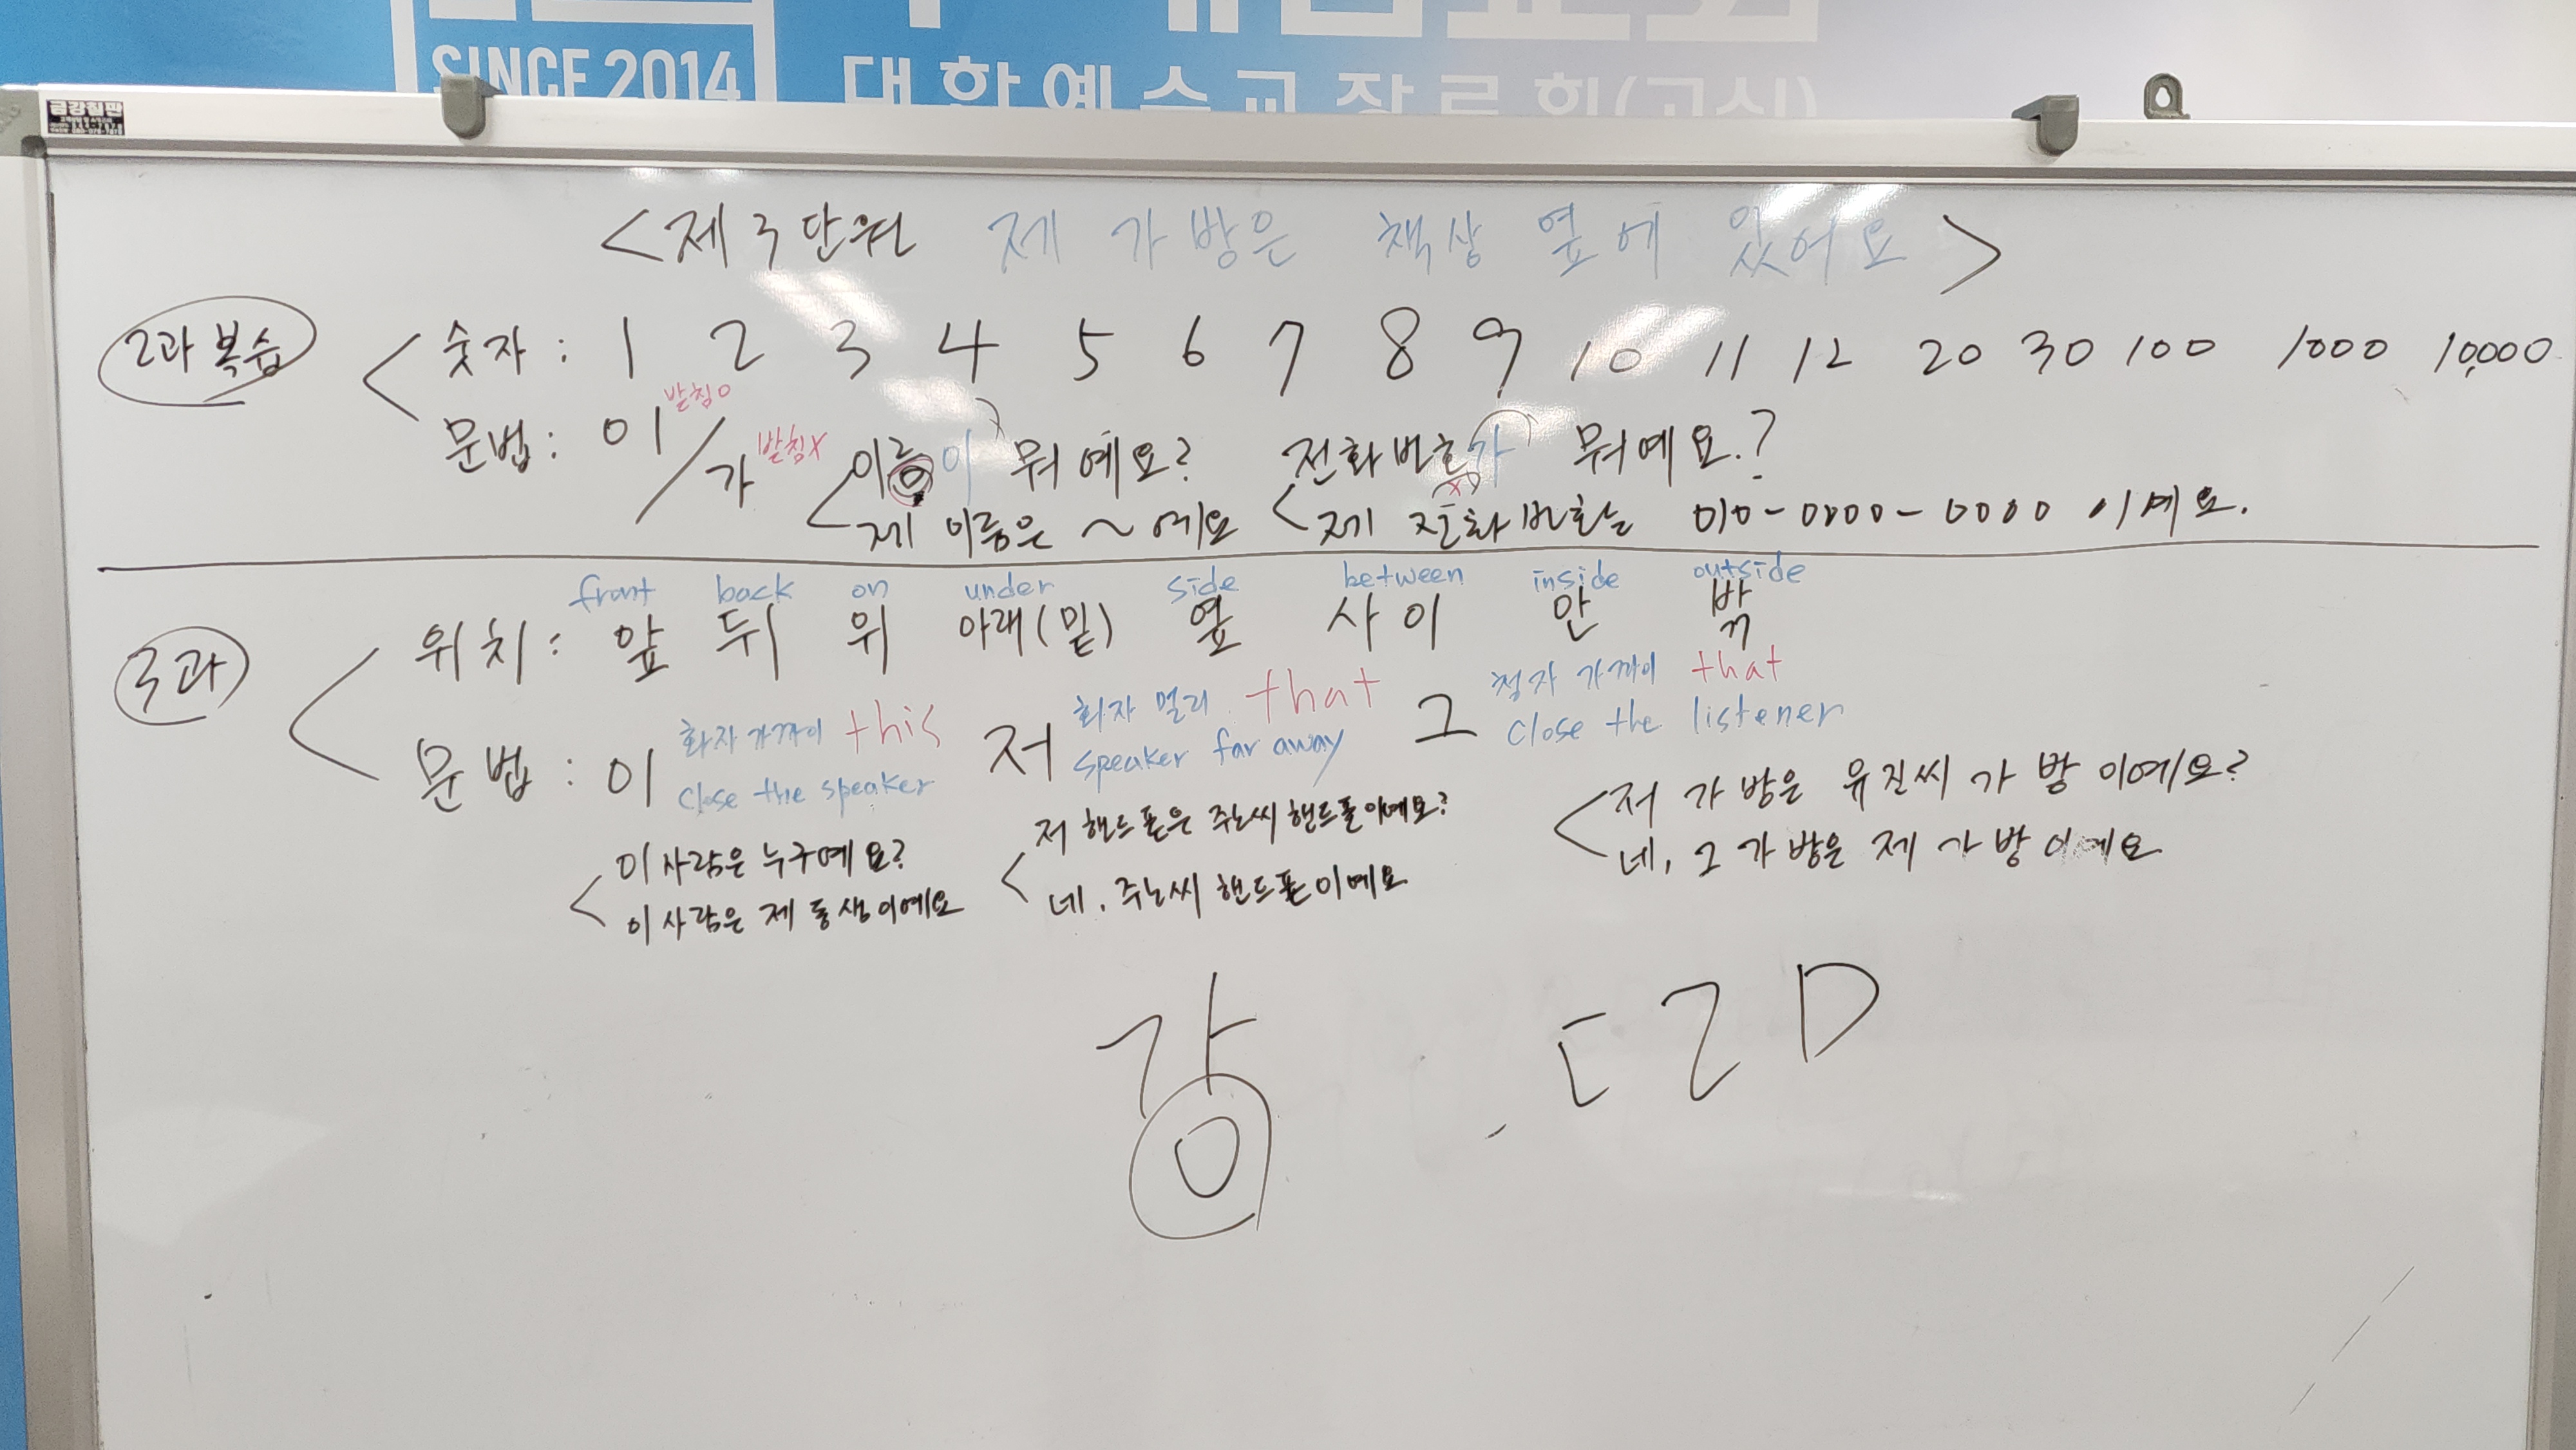 SINCE 2014
대한예수교장로회(고신)
금강칠판
<제3단원 제 가방은 책상 옆에 있어요>
2과 복습
숫자 : 1 2 3 4 5 6 7 8 9 10 11 12 20 30 100 1000 10,000
문법 : 이 받침o / 가 받침x
이름이 뭐예요? 전화번호가 뭐예요.?
제 이름은 ~ 예요 제 전화번호는 010-0000-0000 이예요.
front back on under side between inside outside
3과
위치 : 앞 뒤 위 아래(밑) 옆 사이 안 밖
문법 : 이 화자 가까이 this close the speaker
저 화자 멀리 that speaker far away
그 청자 가까이 that close the listener
이 사람은 누구예요?
이 사람은 제 동생이예요
저 핸드폰은 주노씨 핸드폰이예요?
네. 주노씨 핸드폰이예요
저 가방은 유진씨 가방이예요?
네, 그 가방은 제 가방이예요
강